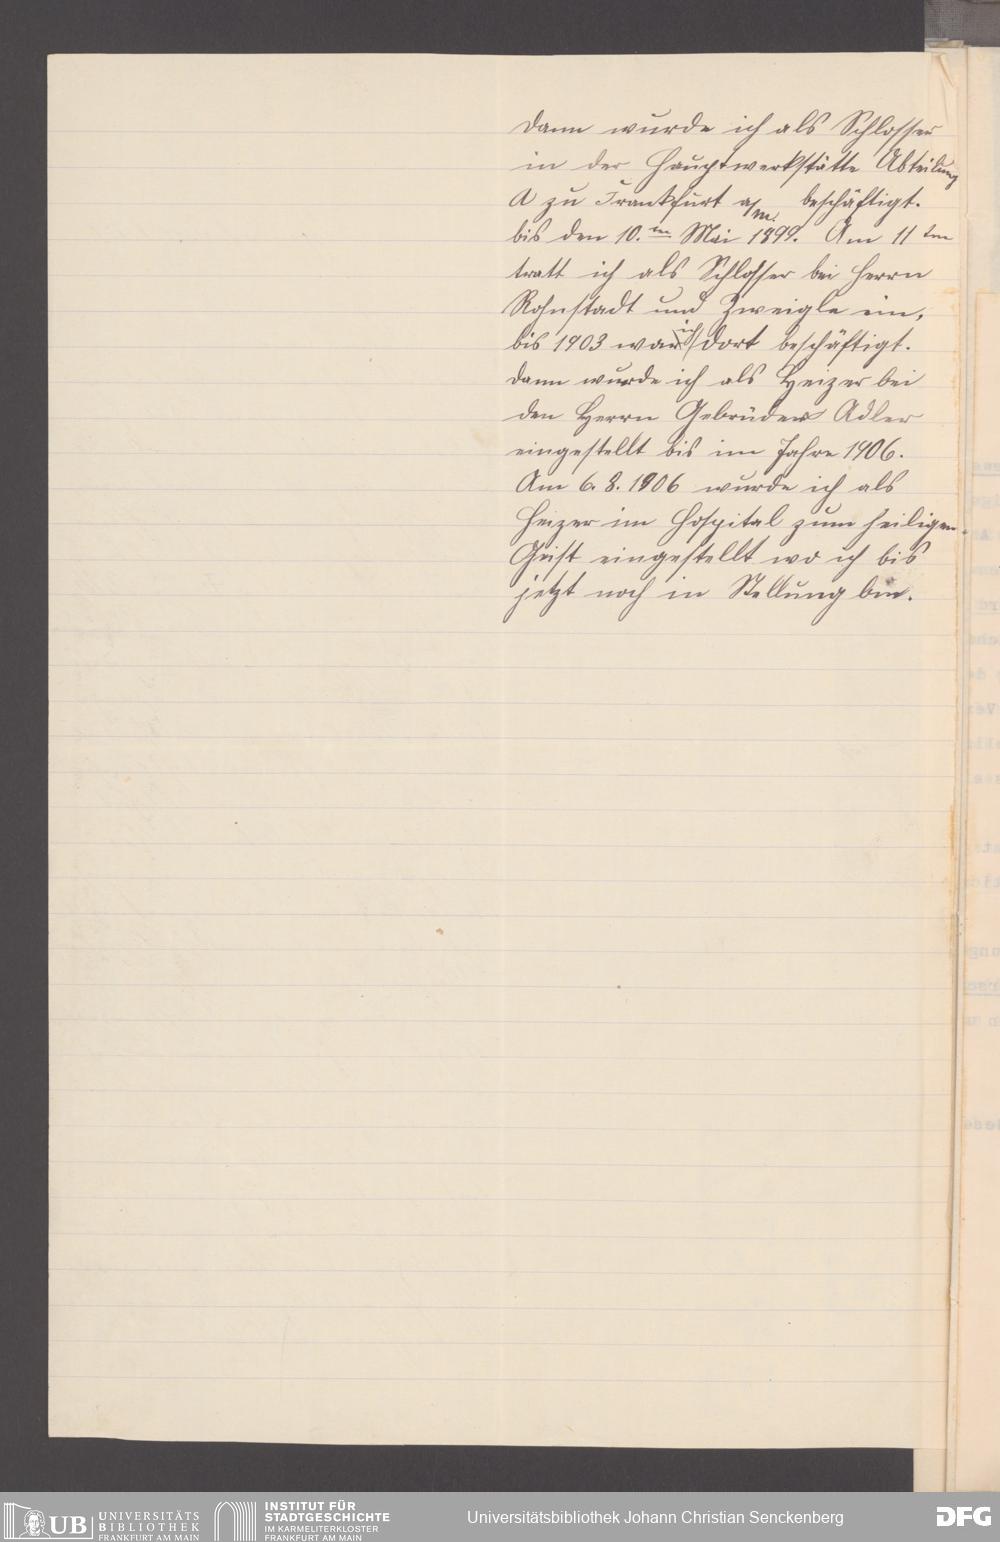 Dann wurde ich als Schlosser
in der Hauptwerkstätte Abteilung
A zu Frankfurt a/M. beschäftigt.
bis den 10.ten Mai 1899. Am 11ten
tratt ich als Schlosser bei Herrn
Rohnstadt und Zweigle ein,
bis 1903 war ich dort beschäftigt.
Dann wurde ich als Heizer bei
den Herrn Gebrüder Adler
eingestellt bis im Jahre 1906.
Am 6. 8. 1906 wurde ich als
Heizer im Hospital zum heiligen
Geist eingestellt wo ich bis
jetzt noch in Stellung bin.
UB UNIVERSITÄTS BIBLIOTHEK FRANKFURT AM MAIN
INSTITUT FÜR STADTGESCHICHTE IM KARMELITERKLOSTER FRANKFURT AM MAIN
Universitätsbibliothek Johann Christian Senckenberg
DFG